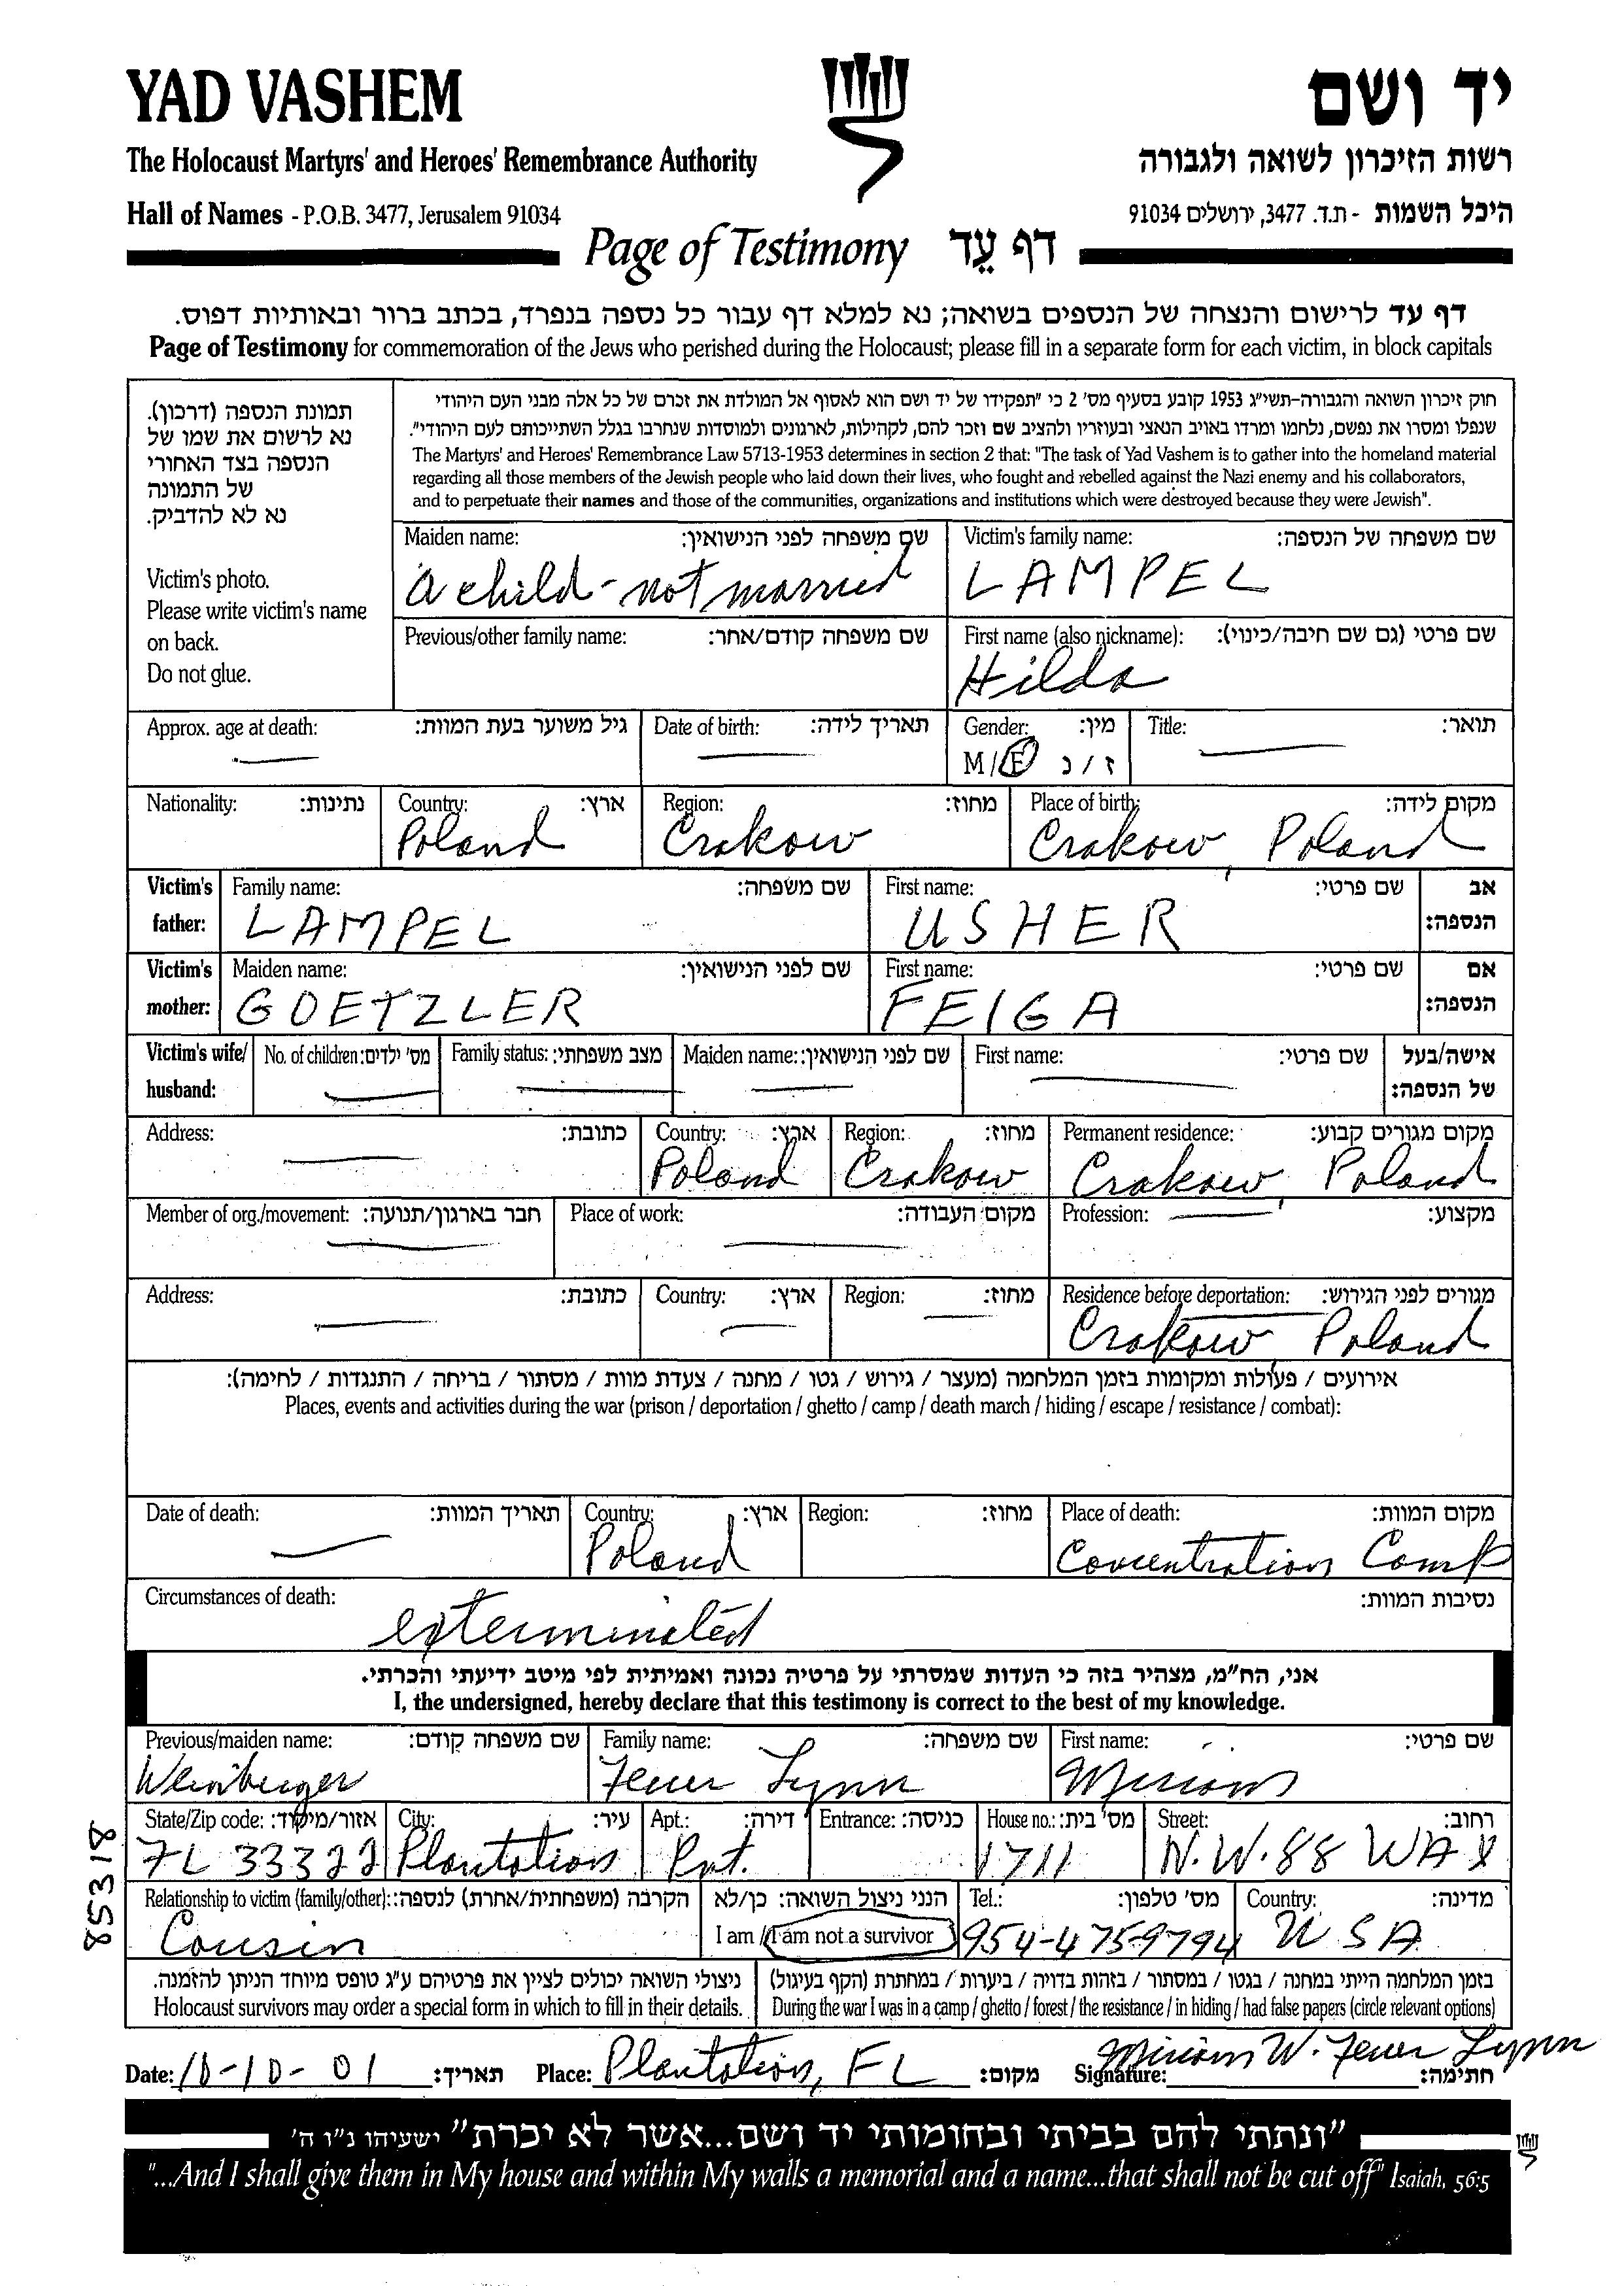 YAD VASHEM
יד ושם
The Holocaust Martyrs' and Heroes' Remembrance Authority
רשות הזיכרון לשואה ולגבורה
Hall of Names - P.O.B. 3477, Jerusalem 91034
היכל השמות - ת.ד. 3477, ירושלים 91034
Page of Testimony דף עֵד
דף עד לרישום והנצחה של הנספים בשואה; נא למלא דף עבור כל נספה בנפרד, בכתב ברור ובאותיות דפוס.
Page of Testimony for commemoration of the Jews who perished during the Holocaust; please fill in a separate form for each victim, in block capitals
תמונת הנספה (דרכון).
נא לרשום את שמו של
הנספה בצד האחורי
של התמונה
נא לא להדביק.
Victim's photo.
Please write victim's name
on back.
Do not glue.
חוק זיכרון השואה והגבורה-תשי"ג 1953 קובע בסעיף מס' 2 כי "תפקידו של יד ושם הוא לאסוף אל המולדת את זכרם של כל אלה מבני העם היהודי
שנפלו ומסרו את נפשם, נלחמו ומרדו באויב הנאצי ובעוזריו ולהציב שם וזכר להם, לקהילות, לארגונים ולמוסדות שנחרבו בגלל השתייכותם לעם היהודי".
The Martyrs' and Heroes' Remembrance Law 5713-1953 determines in section 2 that: "The task of Yad Vashem is to gather into the homeland material
regarding all those members of the Jewish people who laid down their lives, who fought and rebelled against the Nazi enemy and his collaborators,
and to perpetuate their names and those of the communities, organizations and institutions which were destroyed because they were Jewish".
Maiden name: שם משפחה לפני הנישואין:
a child - not married
Victim's family name: שם משפחה של הנספה:
LAMPEL
Previous/other family name: שם משפחה קודם/אחר:
First name (also nickname): שם פרטי (גם שם חיבה/כינוי):
Hilda
Approx. age at death: גיל משוער בעת המוות:
Date of birth: תאריך לידה:
Gender: מין:
M/F ז/נ
Title: תואר:
Nationality: נתינות:
Country: ארץ:
Poland
Region: מחוז:
Crakow
Place of birth: מקום לידה:
Crakow, Poland
Victim's father: Family name: שם משפחה:
LAMPEL
First name: שם פרטי: אב הנספה:
USHER
Victim's mother: Maiden name: שם לפני הנישואין:
GOETZLER
First name: שם פרטי: אם הנספה:
FEIGA
Victim's wife/ husband: No. of children: מס' ילדים:
Family status: מצב משפחתי:
Maiden name: שם לפני הנישואין:
First name: שם פרטי: אישה/בעל של הנספה:
Address: כתובת:
Country: ארץ:
Poland
Region: מחוז:
Crakow
Permanent residence: מקום מגורים קבוע:
Crakow, Poland
Member of org./movement: חבר בארגון/תנועה:
Place of work: מקום העבודה:
Profession: מקצוע:
Address: כתובת:
Country: ארץ:
Region: מחוז:
Residence before deportation: מגורים לפני הגירוש:
Crakow Poland
אירועים / פעולות ומקומות בזמן המלחמה (מעצר / גירוש / גטו / מחנה / צעדת מוות / מסתור / בריחה / התנגדות / לחימה):
Places, events and activities during the war (prison / deportation / ghetto / camp / death march / hiding / escape / resistance / combat):
Date of death: תאריך המוות:
Country: ארץ:
Poland
Region: מחוז:
Place of death: מקום המוות:
Concentration Camp
Circumstances of death: נסיבות המוות:
exterminated
אני, הח"מ, מצהיר בזה כי העדות שמסרתי על פרטיה נכונה ואמיתית לפי מיטב ידיעתי והכרתי.
I, the undersigned, hereby declare that this testimony is correct to the best of my knowledge.
Previous/maiden name: שם משפחה קודם:
Weinberger
Family name: שם משפחה:
Feuer Lynn
First name: שם פרטי:
Miriam
State/Zip code: אזור/מיקוד:
FL 33322
City: עיר:
Plantation
Apt.: דירה:
Pvt.
Entrance: כניסה:
House no.: מס' בית:
1711
Street: רחוב:
N.W. 88 WAY
Relationship to victim (family/other): הקרבה (משפחתית/אחרת) לנספה:
Cousin
הנני ניצול השואה: כן/לא
I am / I am not a survivor
Tel.: מס' טלפון:
954-475-9794
Country: מדינה:
USA
ניצולי השואה יכולים לציין את פרטיהם ע"ג טופס מיוחד הניתן להזמנה.
Holocaust survivors may order a special form in which to fill in their details.
בזמן המלחמה הייתי במחנה / בגטו / במסתור / בזהות בדויה / ביערות / במחתרת (הקף בעיגול)
During the war I was in a camp / ghetto / forest / the resistance / in hiding / had false papers (circle relevant options)
Date: 10-10-01 תאריך: Place: Plantation, FL מקום: Signature: Miriam W. Feuer Lynn חתימה:
"ונתתי להם בביתי ובחומותי יד ושם...אשר לא יכרת" ישעיהו נ"ו ה'
"...And I shall give them in My house and within My walls a memorial and a name...that shall not be cut off" Isaiah, 56:5
853 18